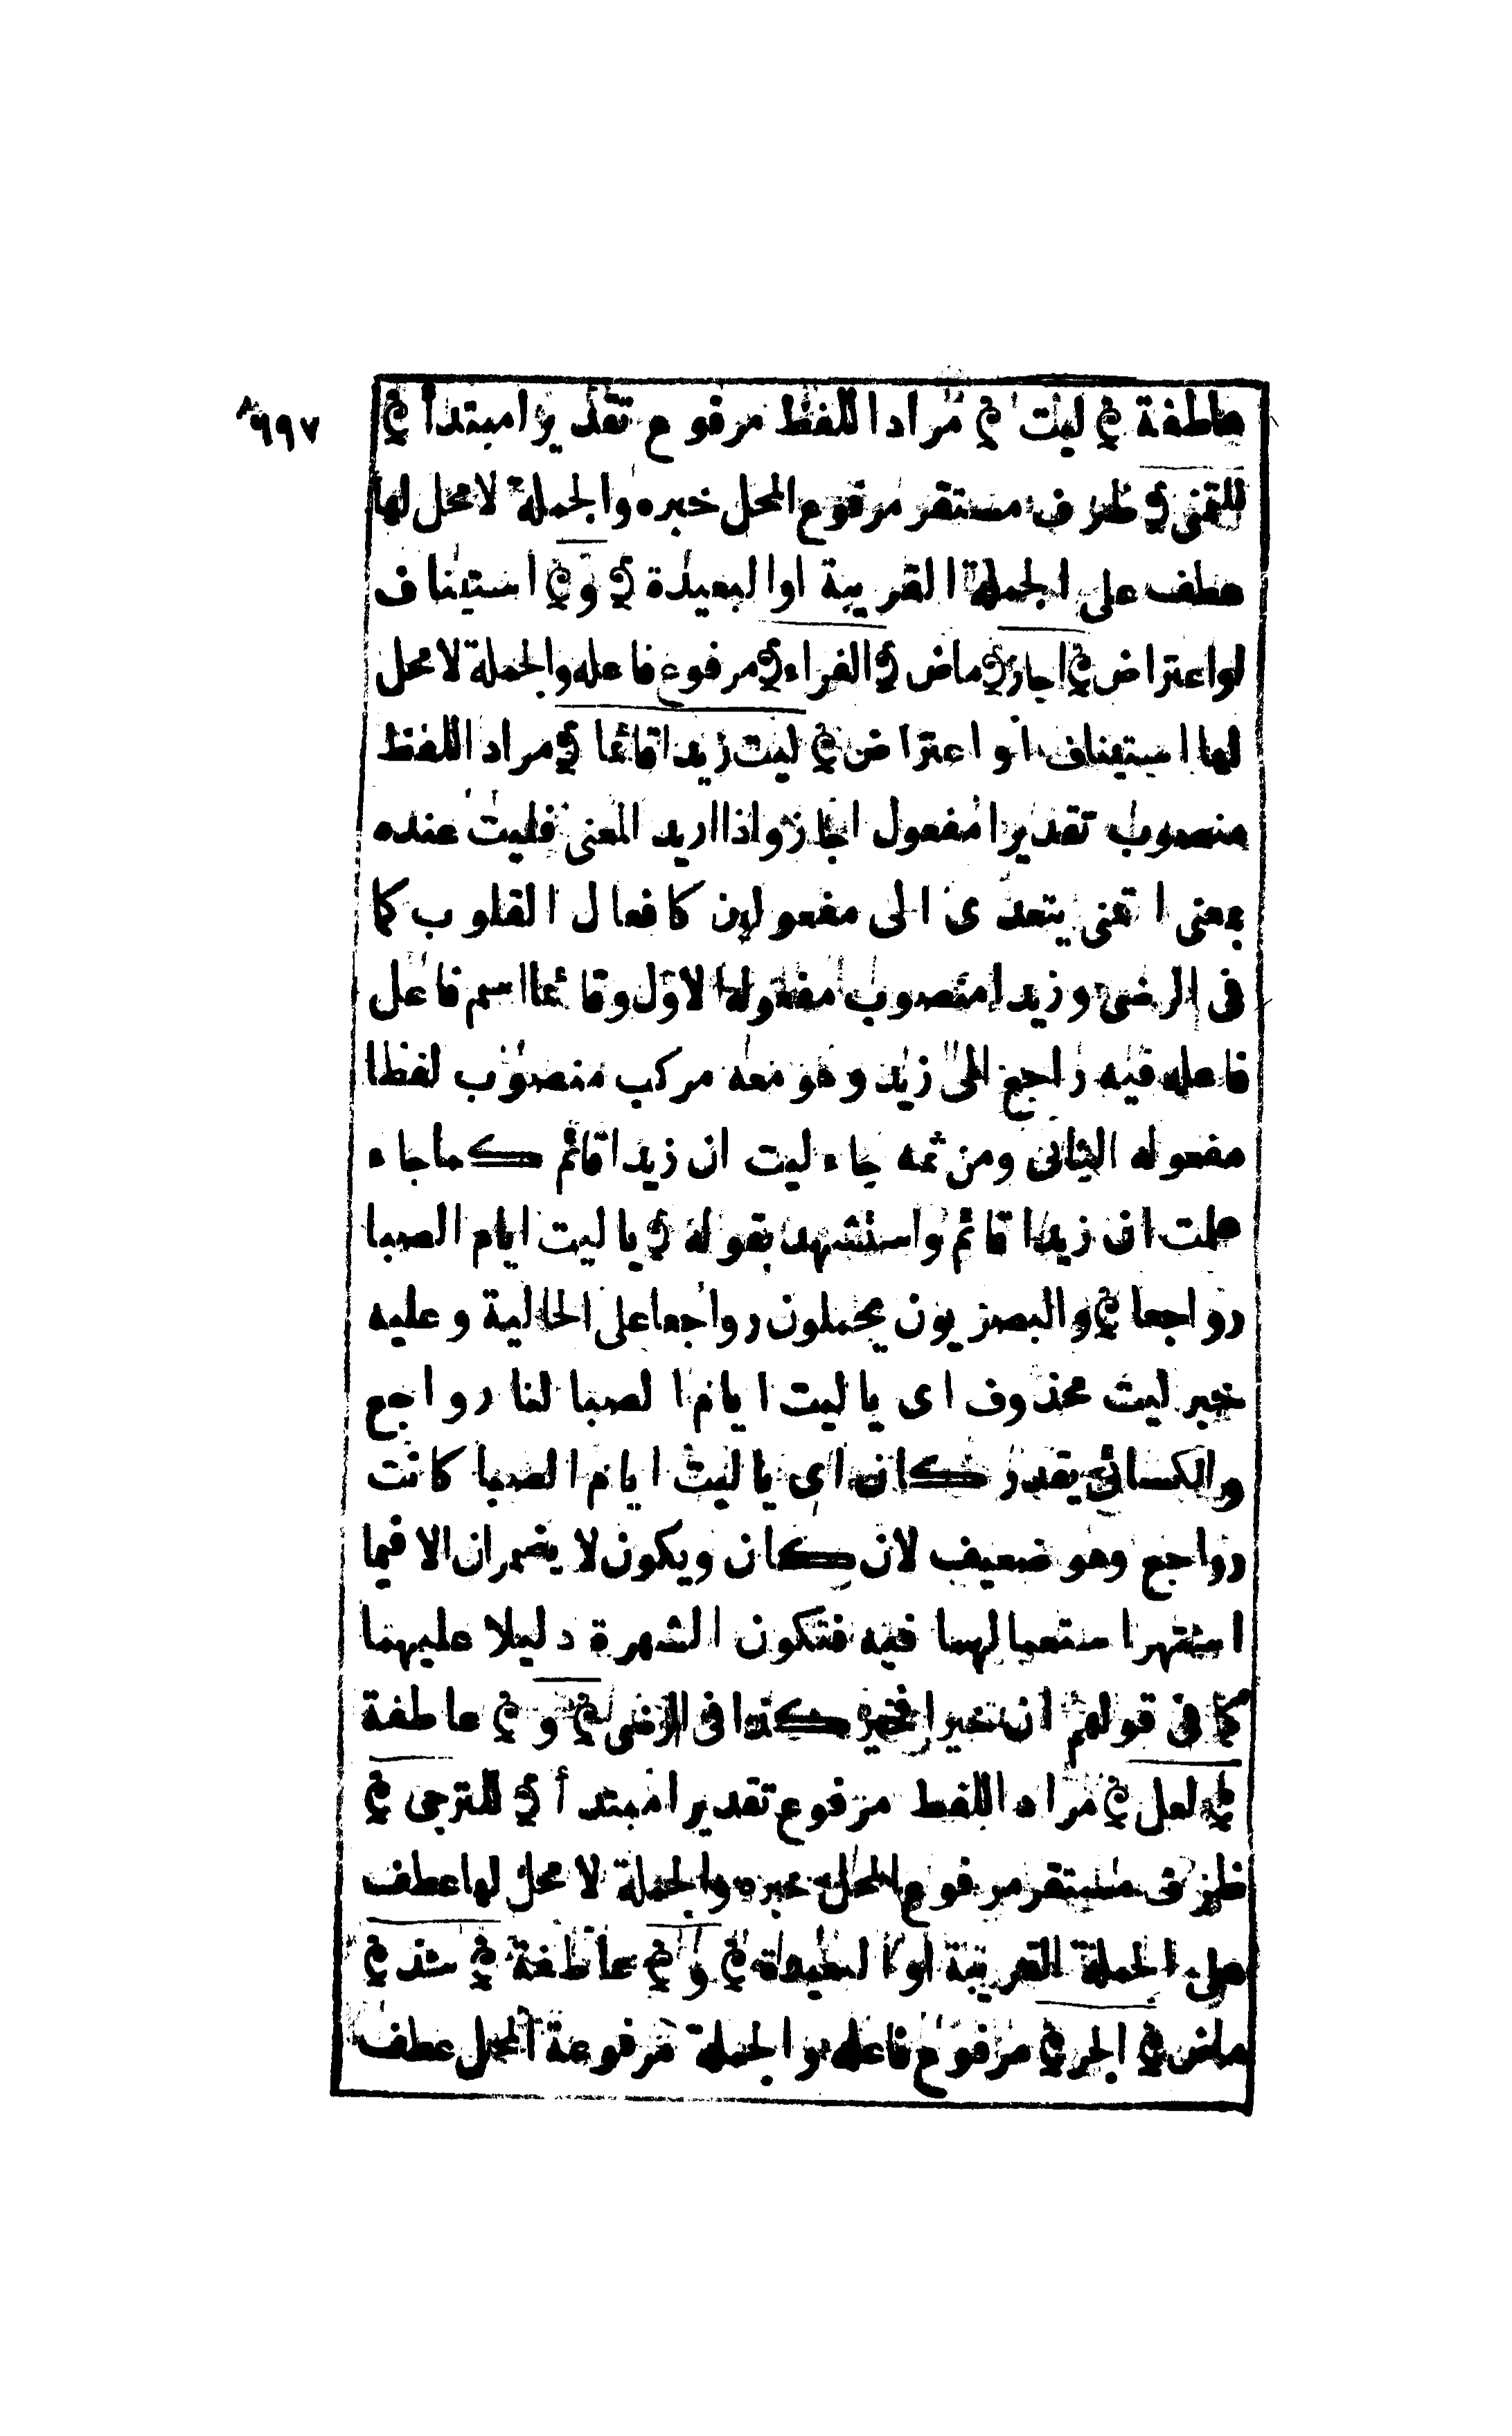 ٦٩٧
عاطفة ﴿ ليت ﴾ مراد اللفظ مرفوع تقديرا مبتدأ ﴿
للتمنى ﴾ ظرف مستقر مرفوع المحل خبره والجملة لا محل لها
عطف على الجملة القريبة او البعيدة ﴿ و ﴾ استيناف
او اعتراض ﴿ اجاز ﴾ ماض ﴿ الفراء ﴾ مرفوع فاعله والجملة لا محل
لها استيناف او اعتراض ﴿ ليت زيدا قائما ﴾ مراد اللفظ
منصوب تقديرا مفعول اجاز واذا اريد المعنى فليت عنده
بمعنى اتمنى يتعدى الى مفعولين كافعال القلوب كما
فى الرضى وزيدا منصوب مفعوله الاول وقائما اسم فاعل
فاعله فيه راجع الى زيد وهو معه مركب منصوب لفظا
مفعوله الثانى ومن ثمه جاء ليت ان زيدا قائم كما جاء
علمت ان زيدا قائم واستشهد بقوله ﴿ ياليت ايام الصبا
رواجعا ﴾ والبصريون يحملون رواجعا على الحالية وعليه
خبر ليت محذوف اى ياليت ايام الصبا لنا رواجع
والكسائى يقدر كان اى ياليت ايام الصبا كانت
رواجع وهو ضعيف لان كان ويكون لا يضمران الا فيما
اشتهر استعمالهما فيه فتكون الشهرة دليلا عليهما
كما فى قولهم ان خيرا فخير كذا فى الرضى ﴿ و ﴾ عاطفة
﴿ لعل ﴾ مراد اللفظ مرفوع تقديرا مبتدأ ﴿ للترجى ﴾
ظرف مستقر مرفوع المحل خبره والجملة لا محل لها عطف
على الجملة القريبة او البعيدة ﴿ و ﴾ عاطفة ﴿ شذ ﴾
ماض ﴿ الجر ﴾ مرفوع فاعله والجملة مرفوعة المحل عطف